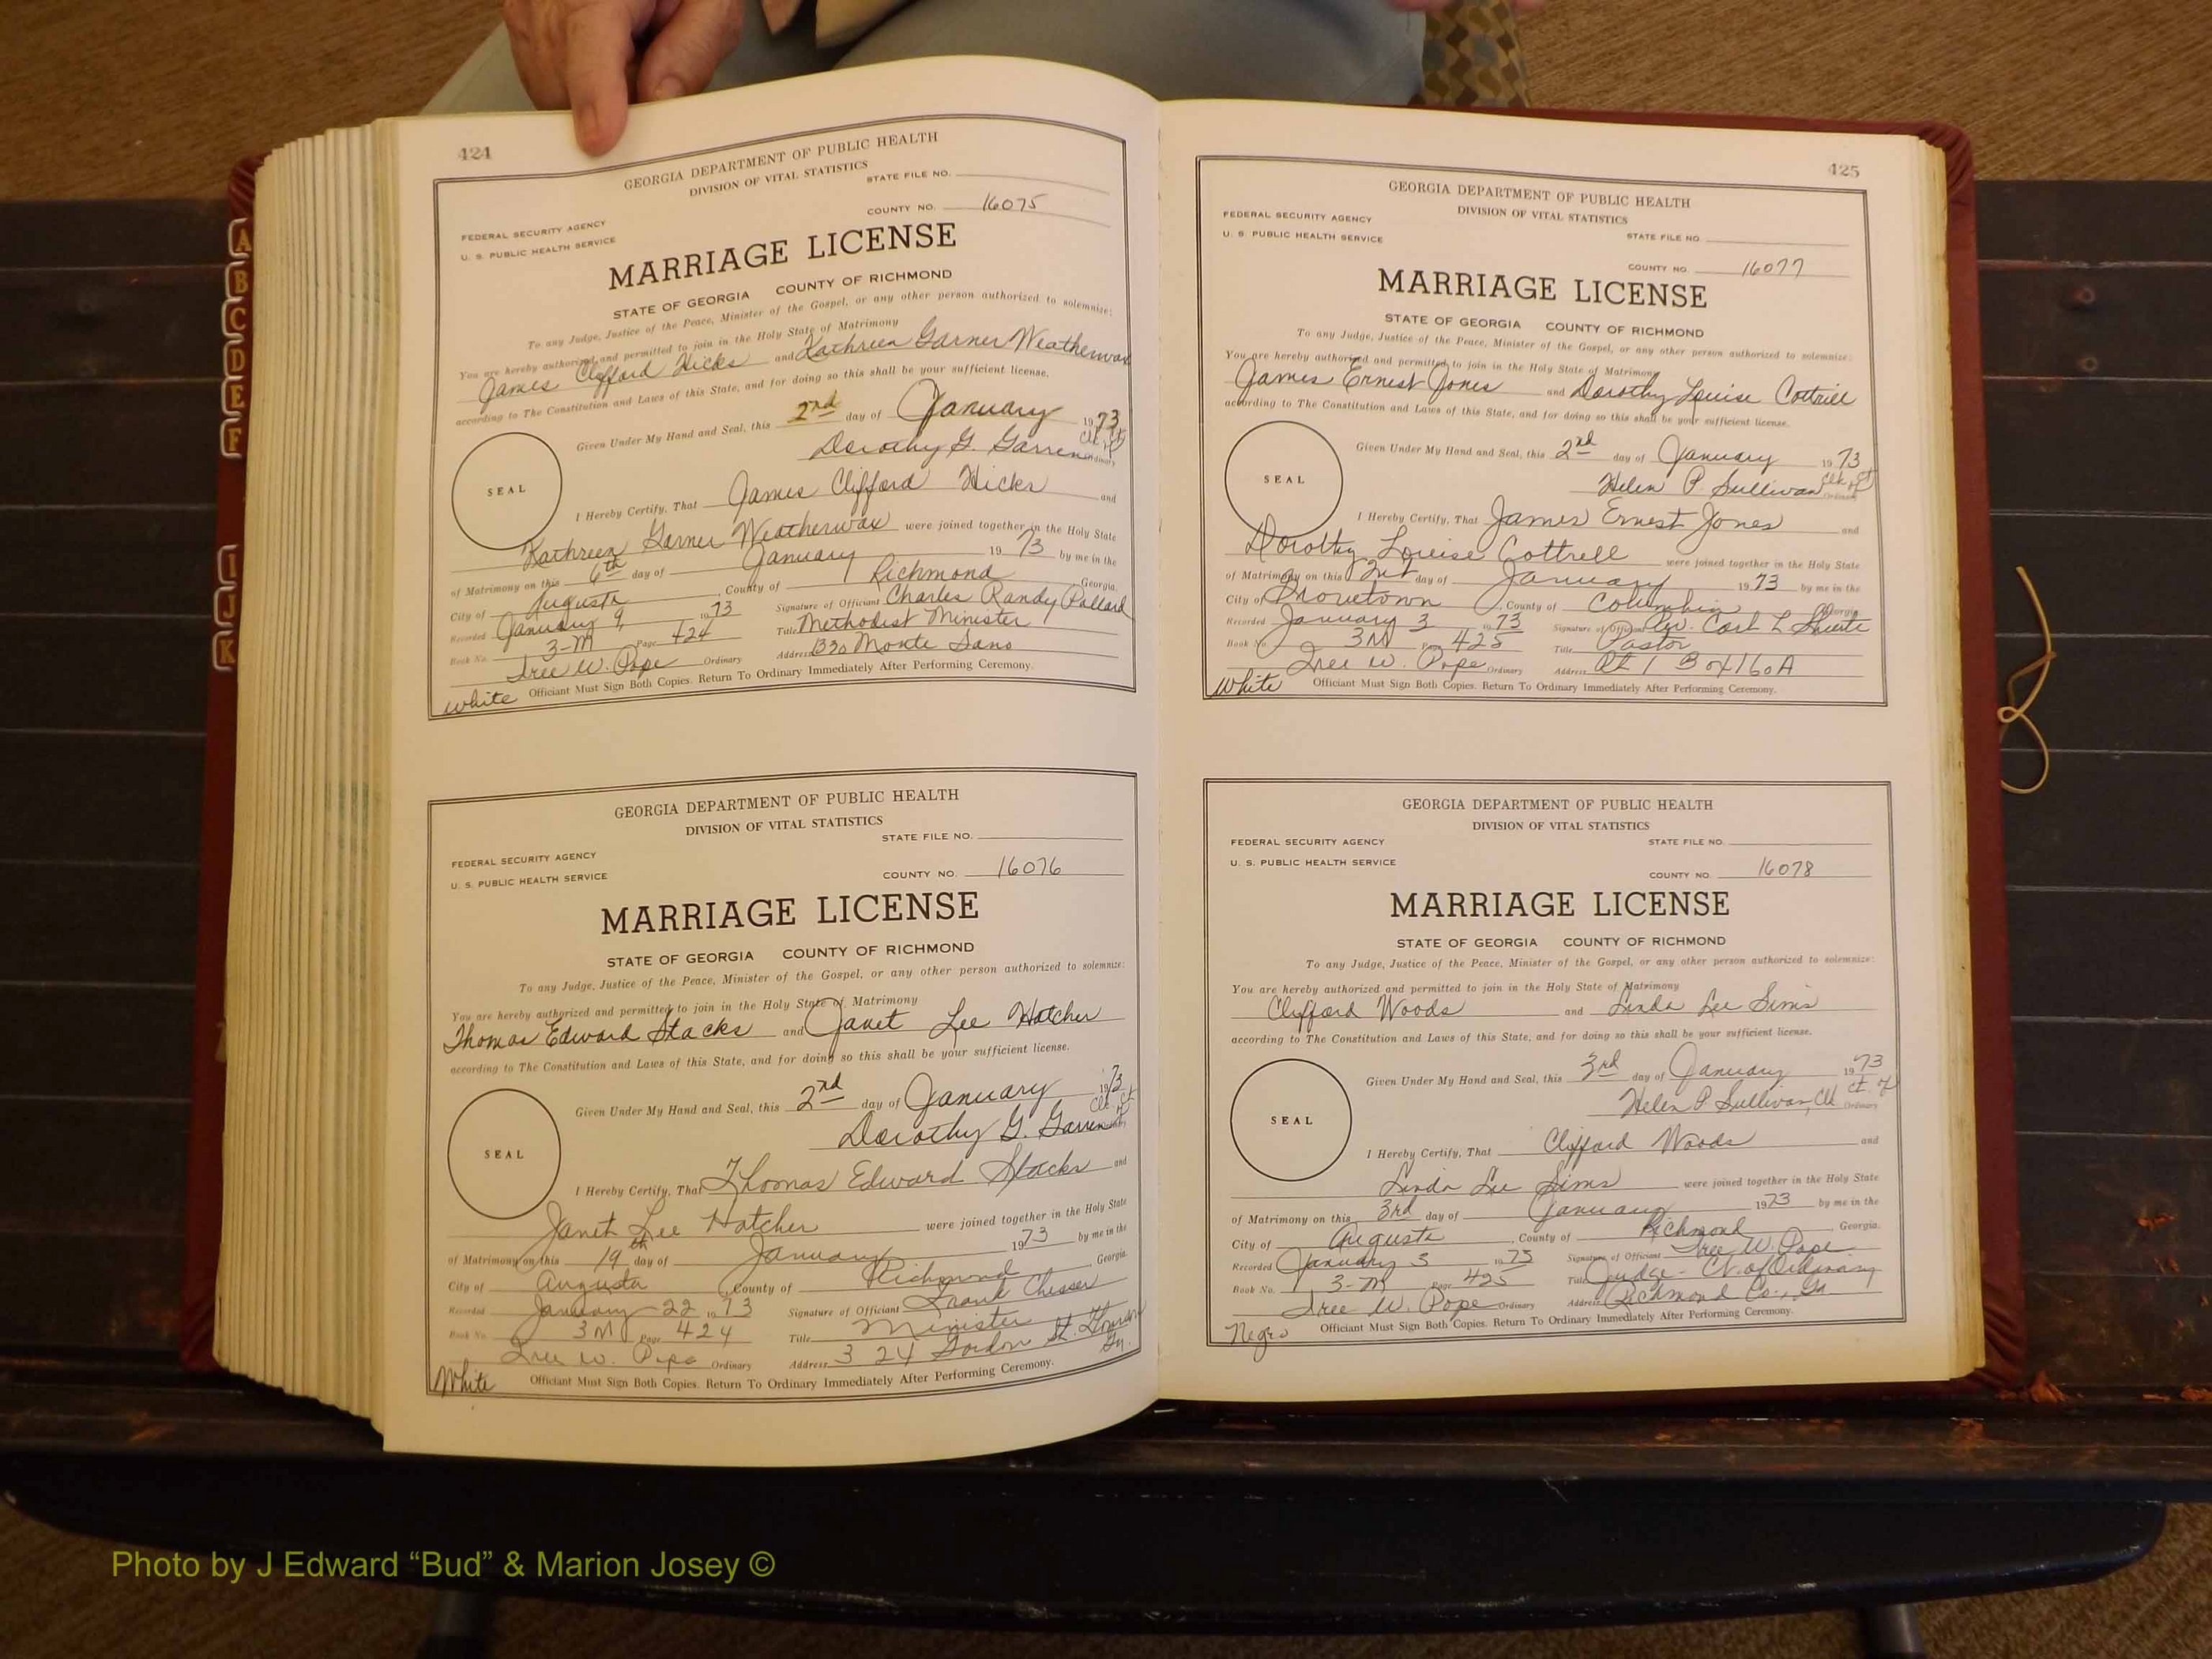 A
B
C
D
E
F
I
J
K
424
GEORGIA DEPARTMENT OF PUBLIC HEALTH
DIVISION OF VITAL STATISTICS
STATE FILE NO.
FEDERAL SECURITY AGENCY
U. S. PUBLIC HEALTH SERVICE
COUNTY NO. 16075
MARRIAGE LICENSE
STATE OF GEORGIA COUNTY OF RICHMOND
To any Judge, Justice of the Peace, Minister of the Gospel, or any other person authorized to solemnize:
You are hereby authorized and permitted to join in the Holy State of Matrimony
James Clifford Hicks and Kathreen Garner Weatherwax
according to The Constitution and Laws of this State, and for doing so this shall be your sufficient license.
Given Under My Hand and Seal, this 2nd day of January 1973
Dorothy G. Garren Clk. Ct. of Ordinary
SEAL
I Hereby Certify, That James Clifford Hicks and
Kathreen Garner Weatherwax were joined together in the Holy State
of Matrimony on this 6th day of January 1973 by me in the
City of Augusta, County of Richmond Georgia.
Recorded January 9, 1973 Signature of Officiant Charles Randy Pollard
Book No. 3-M Page 424 Title Methodist Minister
Ordinary Address 1320 Monte Sano
Officiant Must Sign Both Copies. Return To Ordinary Immediately After Performing Ceremony.
white
GEORGIA DEPARTMENT OF PUBLIC HEALTH
DIVISION OF VITAL STATISTICS
STATE FILE NO.
FEDERAL SECURITY AGENCY
U. S. PUBLIC HEALTH SERVICE
COUNTY NO. 16076
MARRIAGE LICENSE
STATE OF GEORGIA COUNTY OF RICHMOND
To any Judge, Justice of the Peace, Minister of the Gospel, or any other person authorized to solemnize:
You are hereby authorized and permitted to join in the Holy State of Matrimony
Thomas Edward Stacks and Janet Lee Hatcher
according to The Constitution and Laws of this State, and for doing so this shall be your sufficient license.
Given Under My Hand and Seal, this 2nd day of January 1973
Dorothy G. Garren Clk. Ct. of Ordinary
SEAL
I Hereby Certify, That Thomas Edward Stacks and
Janet Lee Hatcher were joined together in the Holy State
of Matrimony on this 19th day of January 1973 by me in the
City of Augusta, County of Richmond Georgia.
Recorded January 22 1973 Signature of Officiant Frank Chesser
Book No. 3M Page 424 Title Minister
W. Pope Ordinary Address 324 Gordon St. Ga.
Officiant Must Sign Both Copies. Return To Ordinary Immediately After Performing Ceremony.
White
425
GEORGIA DEPARTMENT OF PUBLIC HEALTH
DIVISION OF VITAL STATISTICS
STATE FILE NO.
FEDERAL SECURITY AGENCY
U. S. PUBLIC HEALTH SERVICE
COUNTY NO. 16077
MARRIAGE LICENSE
STATE OF GEORGIA COUNTY OF RICHMOND
To any Judge, Justice of the Peace, Minister of the Gospel, or any other person authorized to solemnize:
You are hereby authorized and permitted to join in the Holy State of Matrimony
James Ernest Jones and Dorothy Louise Cottrell
according to The Constitution and Laws of this State, and for doing so this shall be your sufficient license.
Given Under My Hand and Seal, this 2nd day of January 1973
Helen P. Sullivan Clk Ct of Ordinary
SEAL
I Hereby Certify, That James Ernest Jones and
Dorothy Louise Cottrell were joined together in the Holy State
of Matrimony on this 2nd day of January 1973 by me in the
City of Grovetown, County of Columbia Georgia
Recorded January 3 1973 Signature of Officiant Rev. Carl L
Book No. 3M Page 425 Title Pastor
W. Pope Ordinary Address Rt 1 Box 160A
Officiant Must Sign Both Copies. Return To Ordinary Immediately After Performing Ceremony.
White
GEORGIA DEPARTMENT OF PUBLIC HEALTH
DIVISION OF VITAL STATISTICS
FEDERAL SECURITY AGENCY STATE FILE NO.
U. S. PUBLIC HEALTH SERVICE
COUNTY NO. 16078
MARRIAGE LICENSE
STATE OF GEORGIA COUNTY OF RICHMOND
To any Judge, Justice of the Peace, Minister of the Gospel, or any other person authorized to solemnize:
You are hereby authorized and permitted to join in the Holy State of Matrimony
Clifford Woods and Linda Lee Sims
according to The Constitution and Laws of this State, and for doing so this shall be your sufficient license.
Given Under My Hand and Seal, this 3rd day of January 1973
Helen P Sullivan, Clk ct. of Ordinary
SEAL
I Hereby Certify, That Clifford Woods and
Linda Lee Sims were joined together in the Holy State
of Matrimony on this 3rd day of January 1973 by me in the
City of Augusta, County of Richmond, Georgia.
Recorded January 3 1973 Signature of Officiant W. Pope
Book No. 3-M Page 425 Title Judge - Ct. of Ordinary
W. Pope Ordinary Address Richmond Co., Ga
Officiant Must Sign Both Copies. Return To Ordinary Immediately After Performing Ceremony.
Negro
Photo by J Edward “Bud” & Marion Josey ©